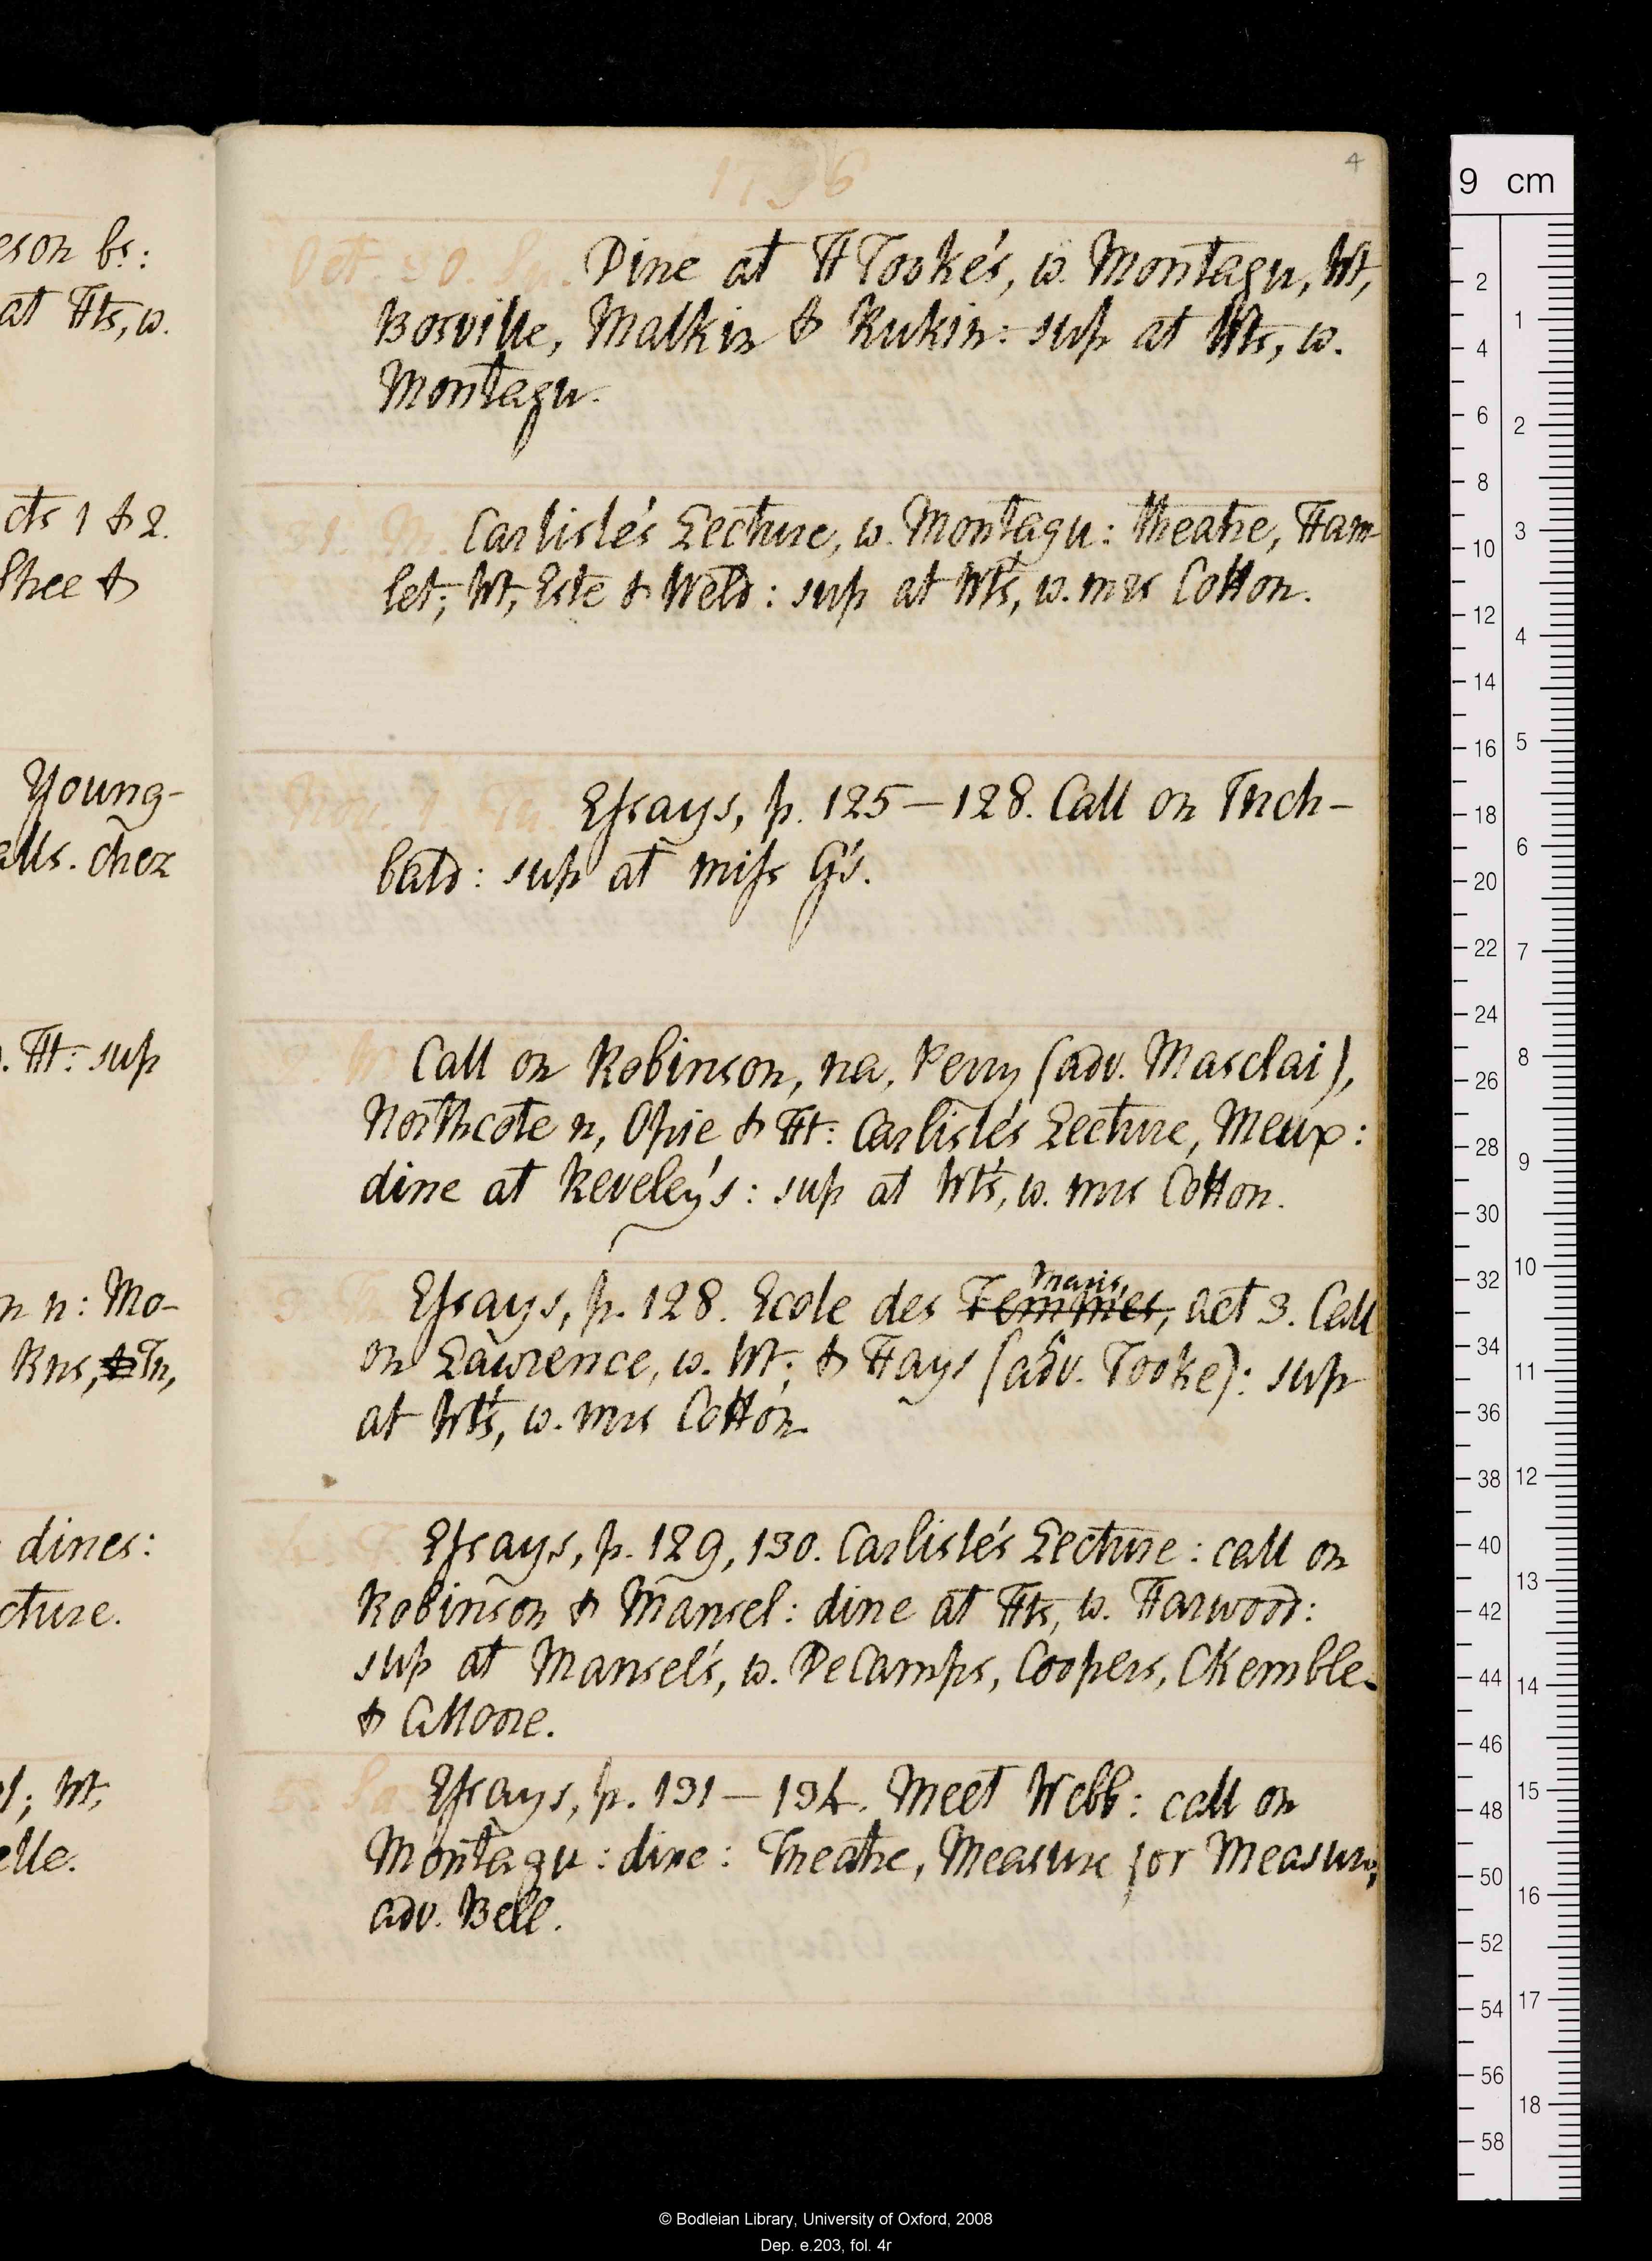 eson bs:
at Hts, w.
cts 1 & 2.
Shee &
Young-
alls. chez
. Ht: sup
n n: Mo-
Rns, & In,
dines:
cture.
; Wt,
elle.
4
1796
Oct. 30. Su. Dine at H Tooke's, w. Montagu, Wt,
Bosville, Malkin & Rukin: sup at Wts, w.
Montagu.
31. M. Carlisle's Lecture, w. Montagu: theatre, Ham-
let; Wt, Este & Weld: sup at Wt's, w. mrs Cotton.
Nov. 1. Tu. Essays, p. 125—128. Call on Inch-
bald: sup at miss G's.
2. W. Call on Robinson, na, Perry (adv. Masclai),
Northcote n, Opie & Ht: Carlisle's Lecture, Meux:
dine at Reveley's: sup at Wt's, w. mrs Cotton.
3. Th. Essays, p. 128. Ecole des Femmes, Maris, act 3. Call
on Lawrence, w. Wt; & Hays (adv. Tooke): sup
at Wt's, w. mrs Cotton
4. F. Essays, p. 129, 130. Carlisle's Lecture: call on
Robinson & Mansel: dine at Hts, w. Harwood:
sup at Mansel's, w. DeCamps, Coopers, CKemble
& CMoore.
5. Sa. Essays, p. 131—134. Meet Webb: call on
Montagu: dine: Theatre, Measure for Measure;
adv. Bell.
9 cm
2
4
6
8
10
12
14
16
18
20
22
24
26
28
30
32
34
36
38
40
42
44
46
48
50
52
54
56
58
1
2
3
4
5
6
7
8
9
10
11
12
13
14
15
16
17
18
© Bodleian Library, University of Oxford, 2008
Dep. e.203, fol. 4r